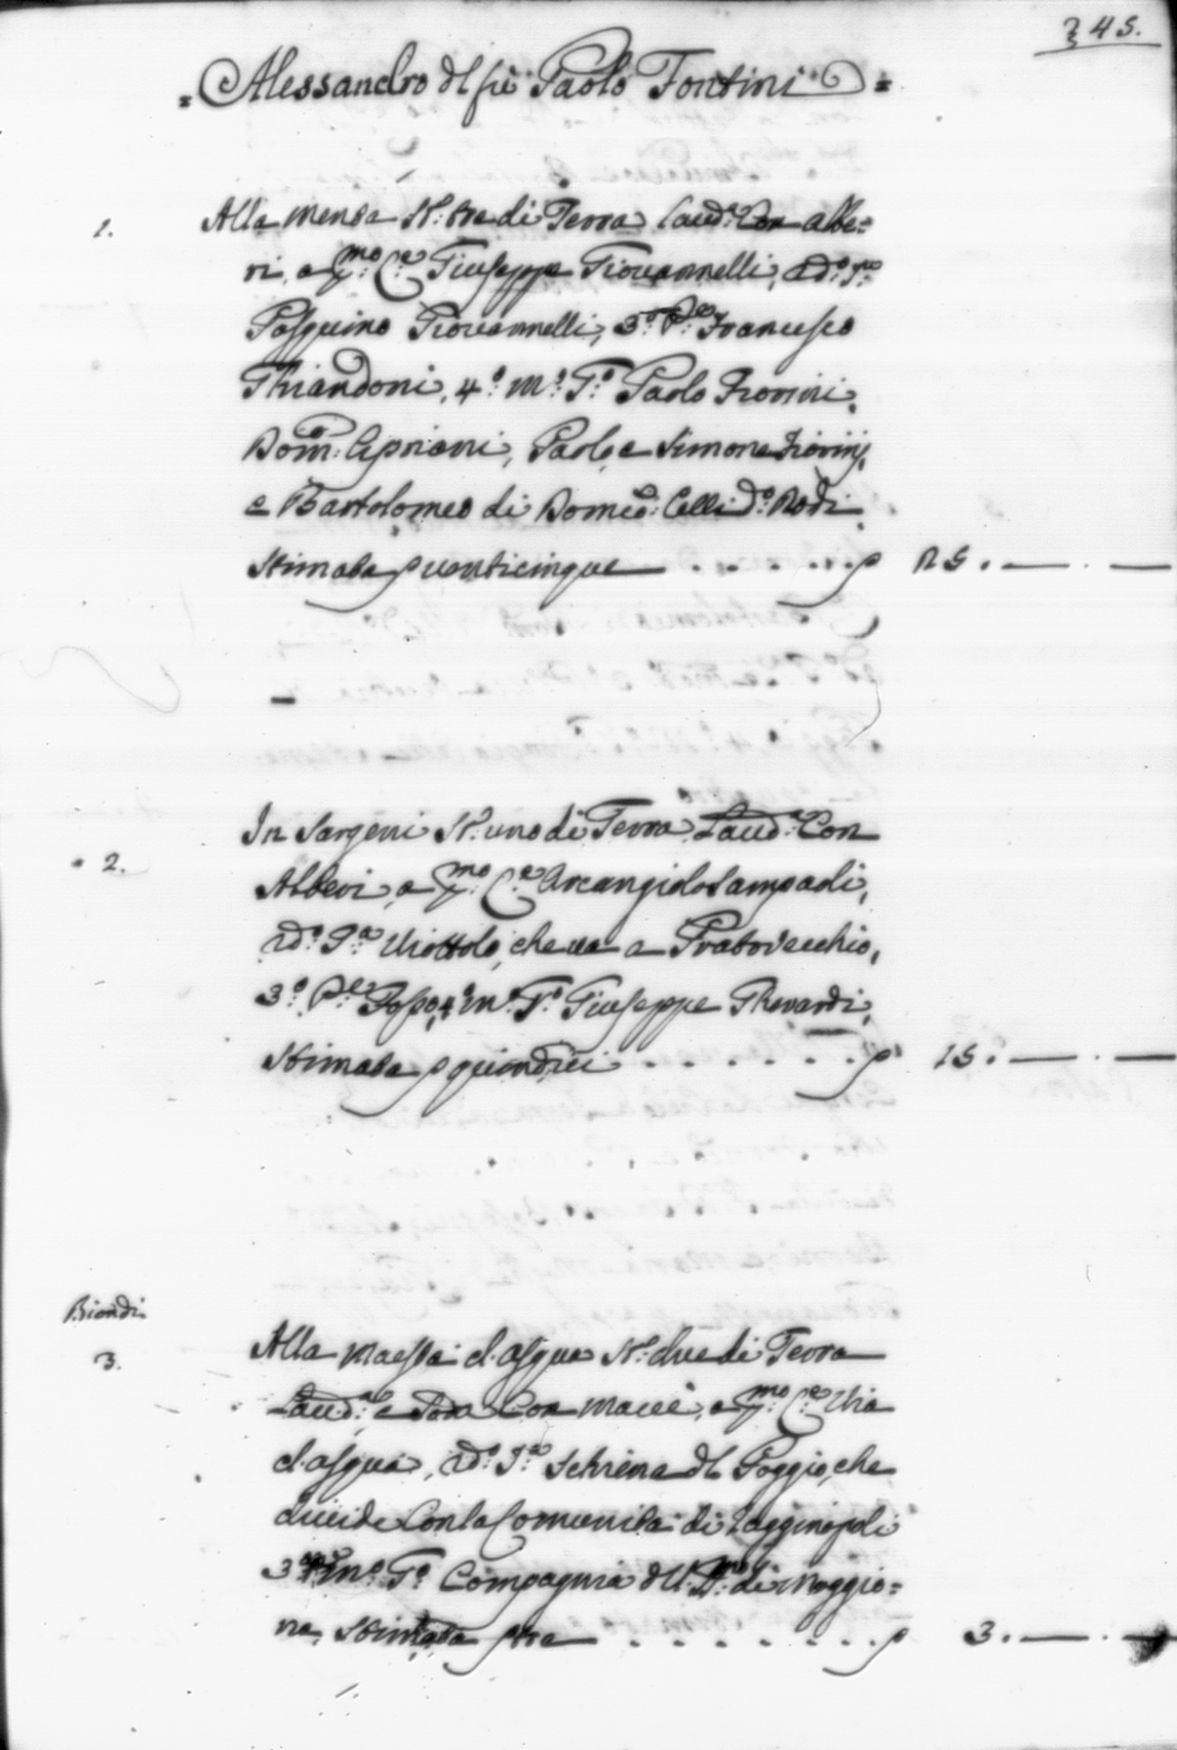 345.
= Alessandro dl fù Paolo Fontini =
1. Alla mensa St: tre di Terra Laud:ª Con albe=
ri, a p:mo C:e Giuseppe Giovannelli, 2d:º 3:zo
Pasquino Giovannelli, 3:º P:e Francesco
Ghiandoni, 4:º m:º T:º Paolo Fiorini,
Dom:co Cipriani, Paolo, e Simone Fiorinj,
e Bartolomeo di Domco: Celli d:º Rodi
Stimata p venticinque . . . . . . p 25. — . —
2. In Sargeni St: uno di Terra Laud:ª Con
Alberi, a p:mo C:e Arcangiolo Sampaoli,
2d:º 3:ª Viottolo, che va a Pratovecchio,
3:º P:e Fosso, 4:º m:º T:º Giuseppe Gherardi,
Stimata p quindici . . . . . . p 15. — . —
Biondi
3. Alla Maestà d'asqua St: due di Terra
Laud:ª e Soda Con Macie, a p:mo C:e Via
d'asqua, 2d:º Schiena dl Poggio, che
divide Con la Comunità di Lagginopoli
3:º m:º T:º Compagnia dl di Moggio=
na, Stimata p tre . . . . . . . p 3. — . —